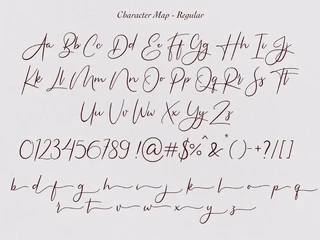 Character Map - Regular
Aa Bb Cc Dd Ee Ff Gg Hh Ii Jj
Kk Ll Mm Nn Oo Pp Qq Rr Ss Tt
Uu Vv Ww Xx Yy Zz
0123456789 !@#$%^&*()-+?/[]
b d f g h i j k l o p q
r t v w x y z